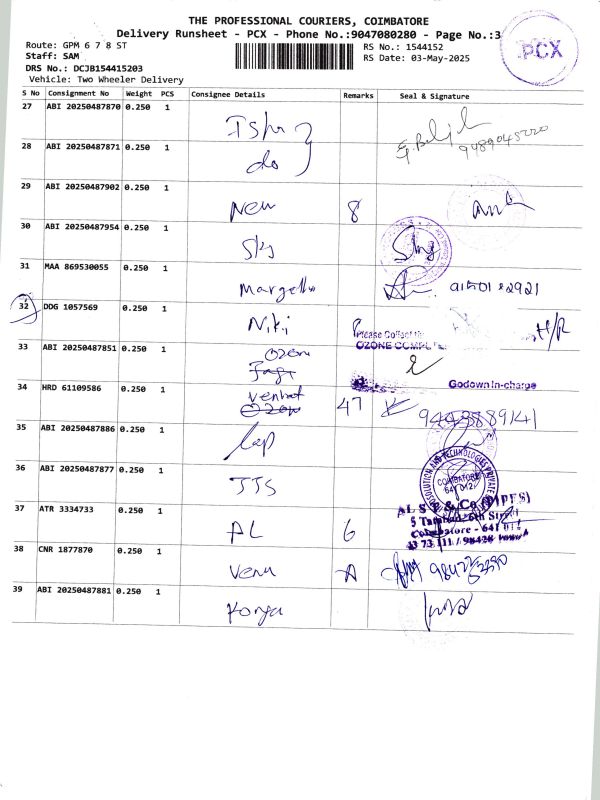 THE PROFESSIONAL COURIERS, COIMBATORE
Delivery Runsheet - PCX - Phone No.:9047080280 - Page No.:3
Route: GPM 6 7 8 ST
RS No.: 1544152
Staff: SAM
RS Date: 03-May-2025
DRS No.: DCJB154415203
Vehicle: Two Wheeler Delivery
PCX
S No Consignment No Weight PCS Consignee Details Remarks Seal & Signature
27 ABI 20250487870 0.250 1
28 ABI 20250487871 0.250 1 do
9489045220
29 ABI 20250487902 0.250 1 New 8
30 ABI 20250487954 0.250 1 Sky
31 MAA 869530055 0.250 1
32 DDG 1057569 0.250 1 Niki H/R
Please Collect
33 ABI 20250487851 0.250 1 Ozon
Godown In-charge
34 HRD 61109586 0.250 1 Venkat 47
35 ABI 20250487886 0.250 1
36 ABI 20250487877 0.250 1 TTS
SOLUTION AND TECHNOLOGIES PRIVATE
COIMBATORE
641 012
37 ATR 3334733 0.250 1 AL 6
5 Tatabad, 6th Street
Coimbatore - 641 012
38 CNR 1877870 0.250 1 Venu A
39 ABI 20250487881 0.250 1